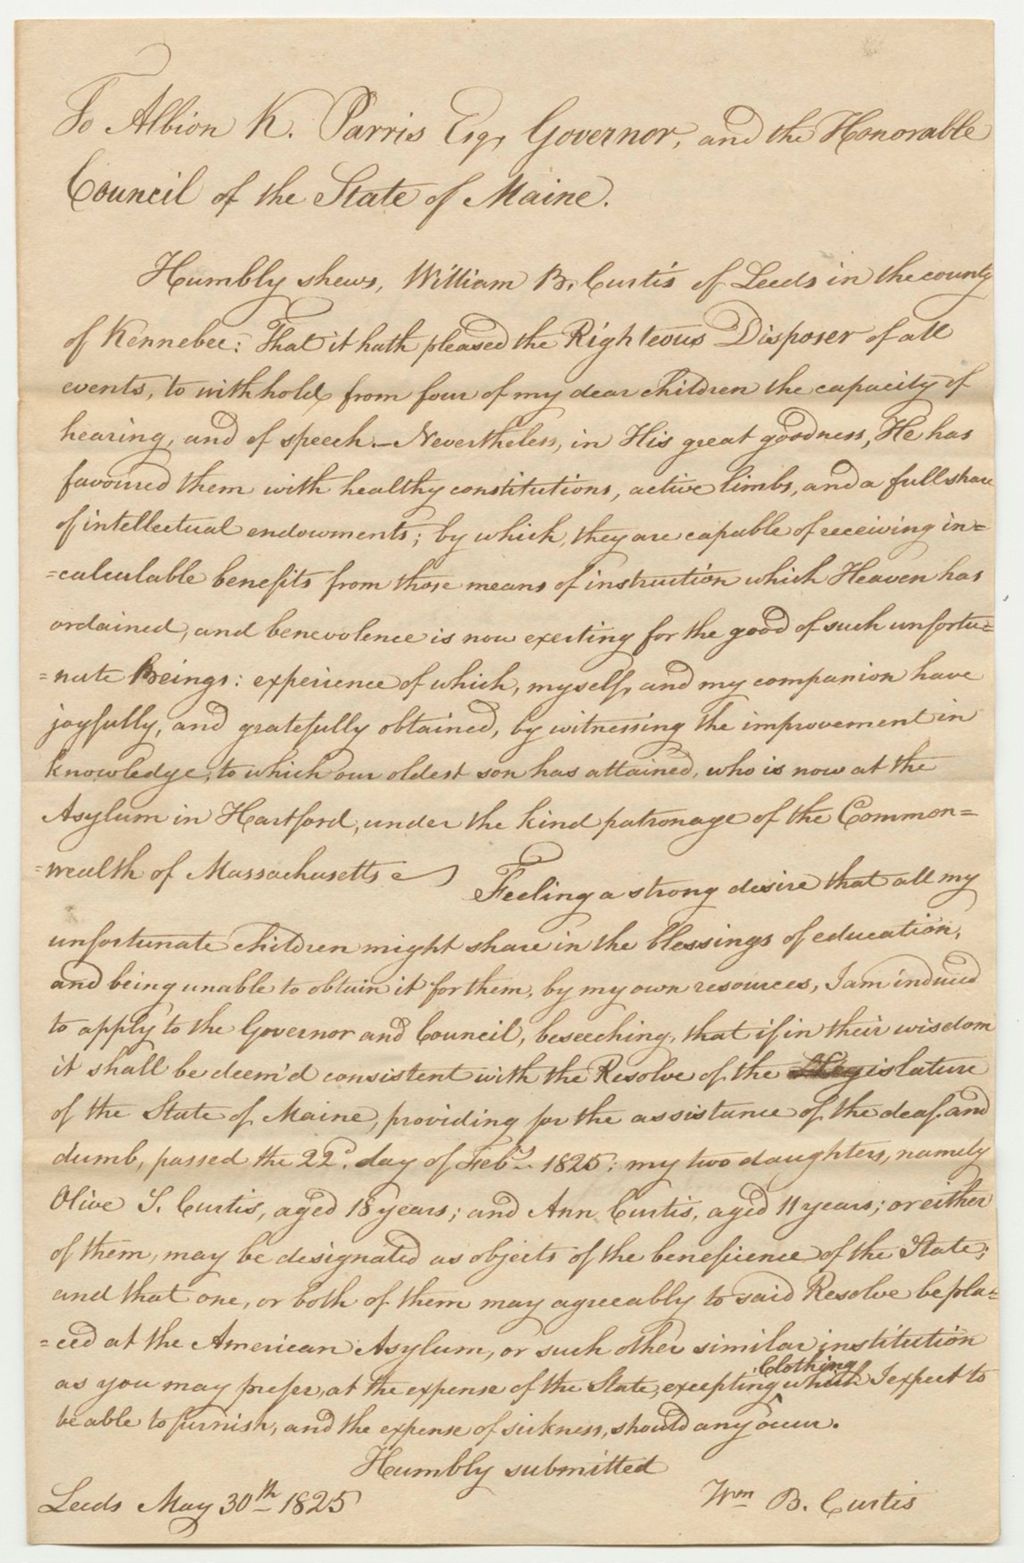 To Albion K. Parris Esq, Governor, and the Honorable
Council of the State of Maine.
Humbly shews, William B. Curtis of Leeds in the county
of Kennebec: That it hath pleased the Righteous Disposer of all
events, to withhold from four of my dear children the capacity of
hearing, and of speech.— Nevertheless, in His great goodness, He has
favoured them with healthy constitutions, active limbs, and a full share
of intellectual endowments; by which, they are capable of receiving in=
=calculable benefits from those means of instruction which Heaven has
ordained, and benevolence is now exerting for the good of such unfortu=
=nate Beings: experience of which, myself, and my companion have
joyfully, and gratefully obtained, by witnessing the improvement in
knowledge, to which our oldest son has attained, who is now at the
Asylum in Hartford, under the kind patronage of the Common=
=wealth of Massachusetts Feeling a strong desire that all my
unfortunate children might share in the blessings of education,
and being unable to obtain it for them, by my own resources, I am induced
to apply to the Governor and Council, beseeching, that if in their wisdom
it shall be deem'd consistent with the Resolve of the Legislature
of the State of Maine, providing for the assistance of the deaf and
dumb, passed the 22d. day of Feby. 1825; my two daughters, namely
Olive S. Curtis, aged 18 years; and Ann Curtis, aged 11 years; or either
of them, may be designated as objects of the beneficience of the State;
and that one, or both of them may agreeably to said Resolve be pla=
=ced at the American Asylum, or such other similar institution
as you may prefer, at the expense of the State, excepting Clothing which I expect to
be able to furnish, and the expense of sickness, should any occur.
Humbly submitted
Leeds May 30th 1825 Wm B. Curtis